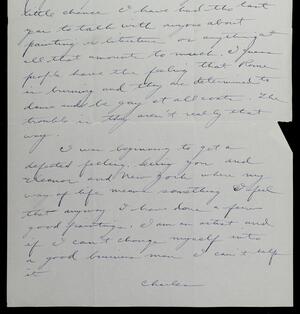 little chance I have had the last
year to talk with anyone about
painting or literature or anything
all that amounts to much. I guess
people have the feeling that Rome
is burning and they are determined to
dance and be gay at all costs. The
trouble is they aren't really that
way.
I was beginning to get a
defeated feeling. Being you and
Eleanor and New York where my
way of life means something I feel
that anyway I have done a few
good paintings. I am an artist and
if I can't change myself into
a good business man I can't help
it
Charles